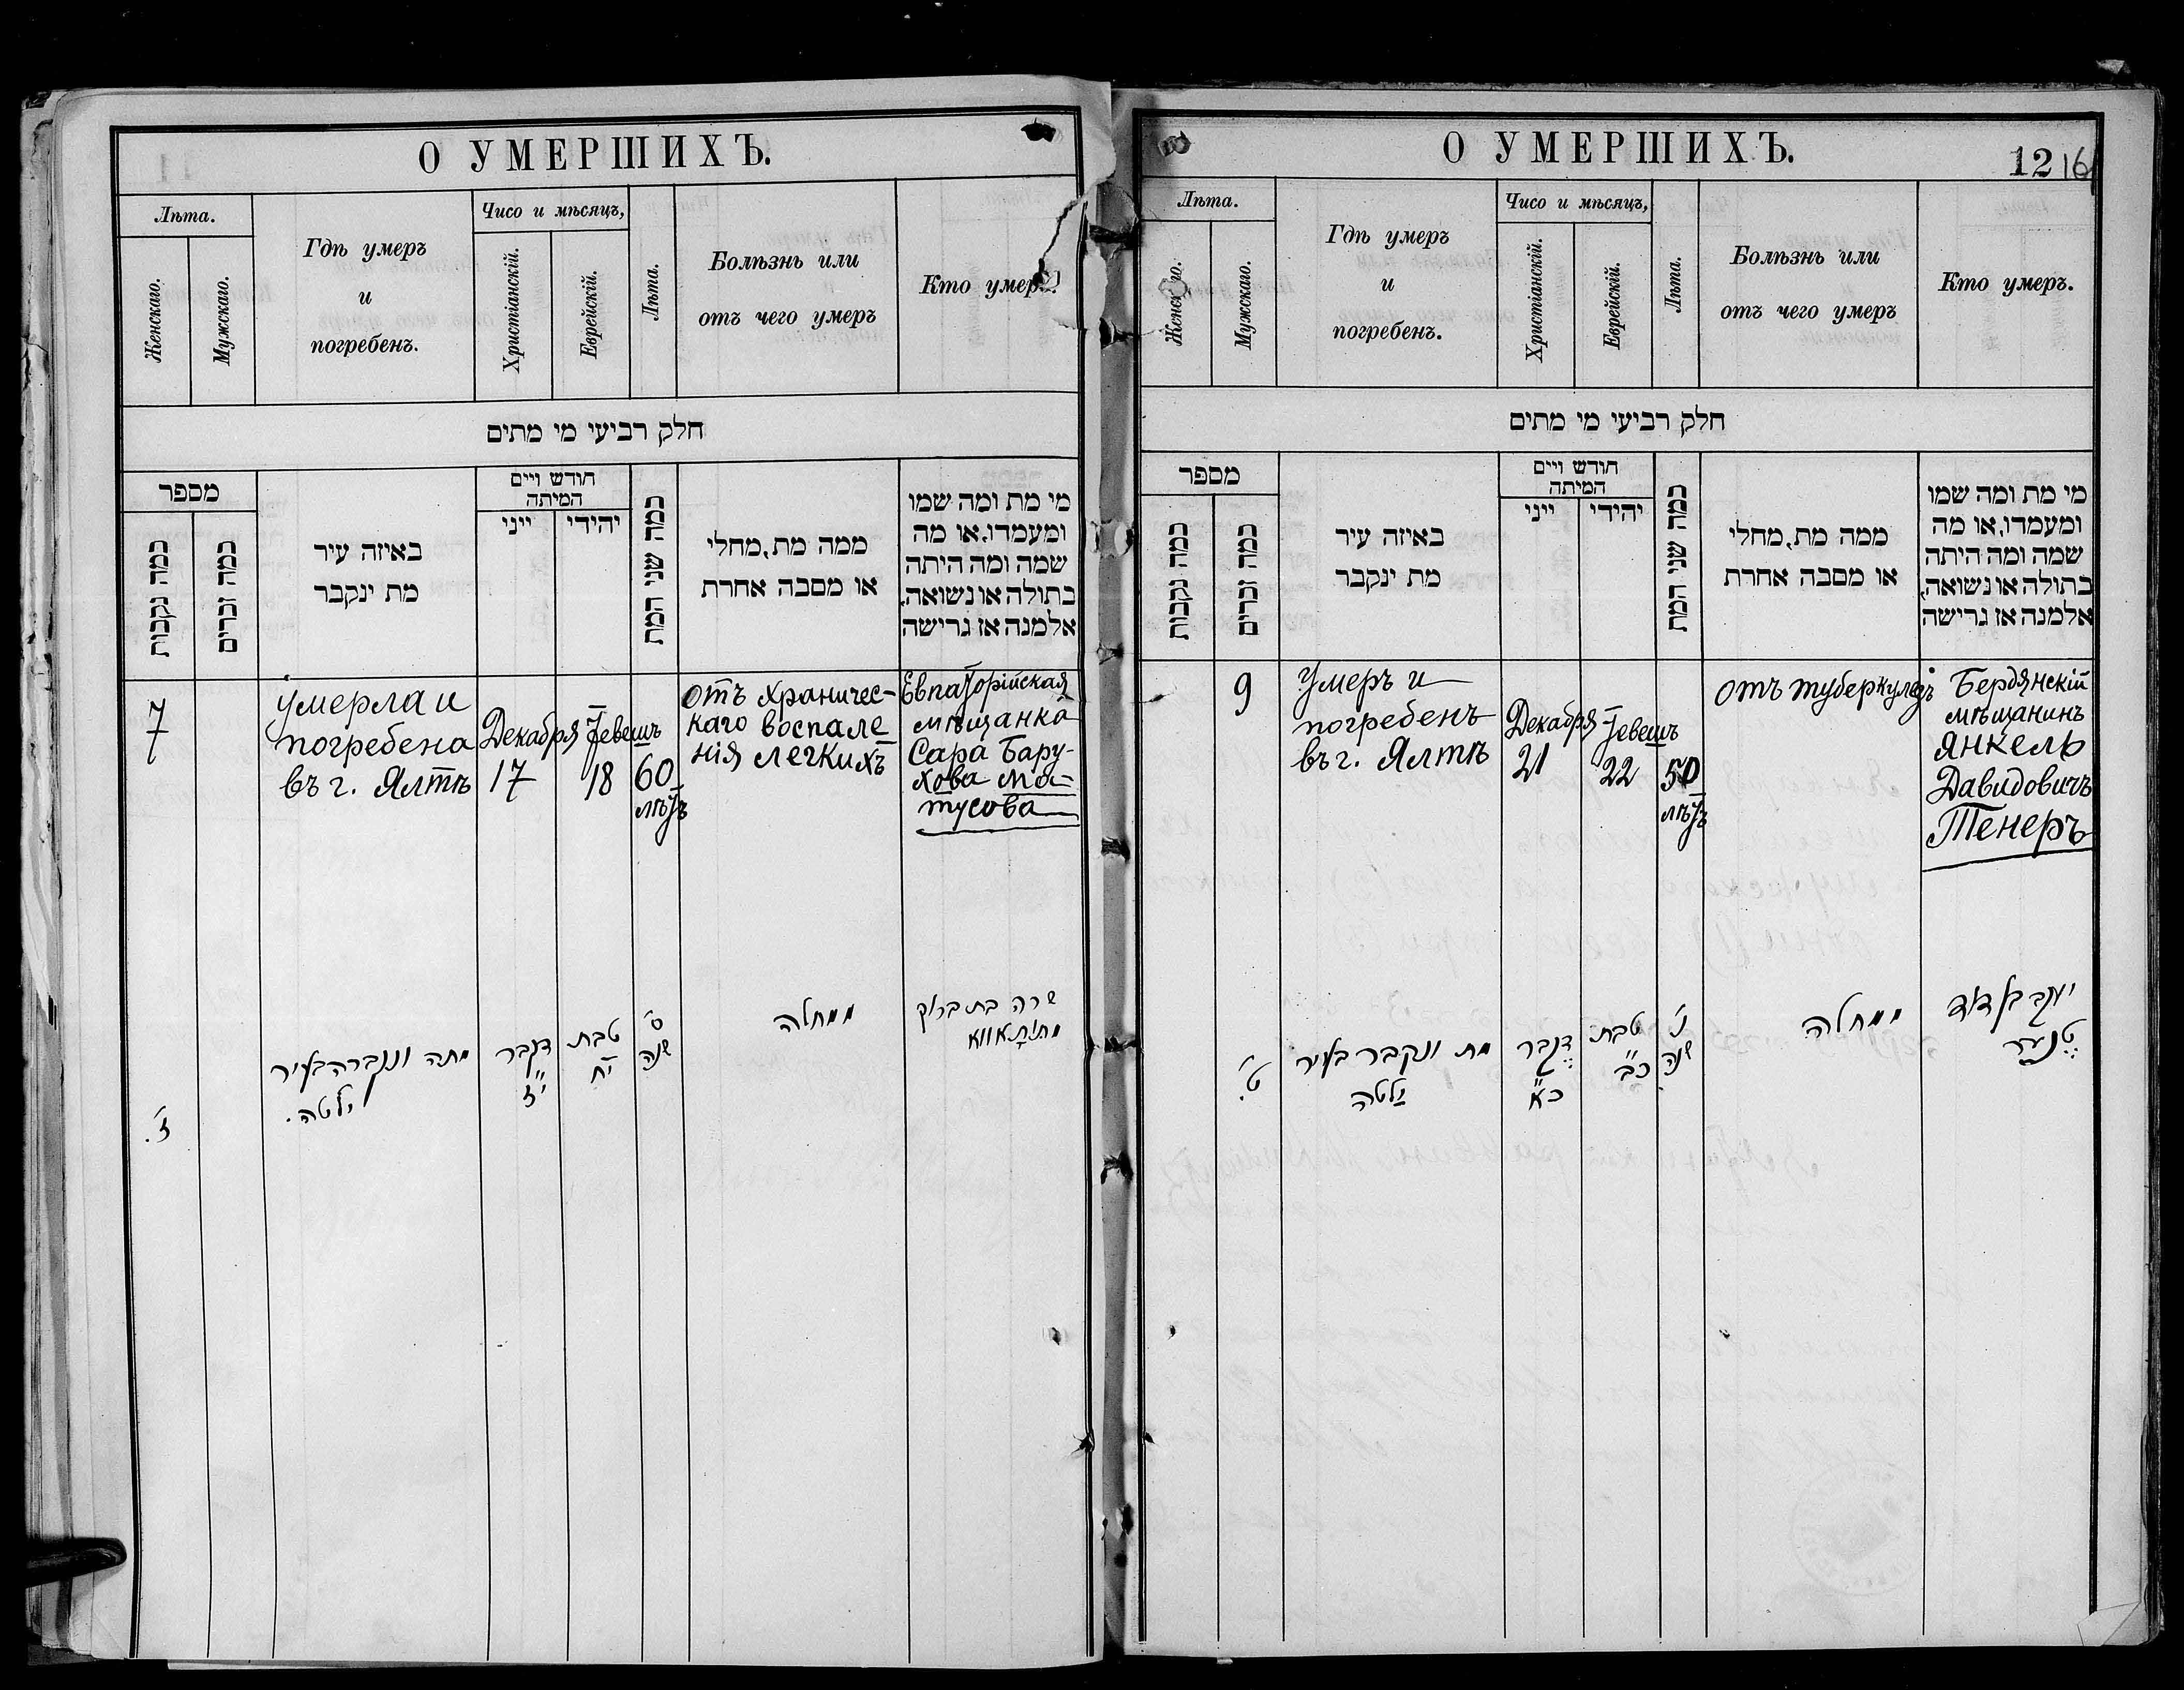 О УМЕРШИХЪ.
Лѣта.
Женскаго.
Мужскаго.
Гдѣ умеръ
и
погребенъ.
Чисо и мѣсяцъ,
Христіанскій.
Еврейскій.
Лѣта.
Болѣзнь или
отъ чего умеръ
Кто умер
חלק רביעי מי מתים
מספר
כמה נקבות
כמה זכרים
באיזה עיר
מת ינקבר
חודש ויים
המיתה
ייני
יהידי
כמה שני המת
ממה מת, מחלי
או מסבה אחרת
מי מת ומה שמו
ומעמדו, או מה
שמה ומה היתה
בתולה או נשואה,
אלמנה אז גרישה
7
умерла и
погребена
въ г. Ялтѣ
Декабря
17
Тевешъ
18
60
лѣтъ
отъ храничес-
каго воспале
нія легкихъ
Евпаторійская
мѣщанка
Сара Бару-
хова Ма-
тусова
ז'.
מתה ונקברה בעיר
ילטה.
דקבר
י"ז
טבת
י"ח
ס'
שנה
ממחלה
שרה בת ברוך
О УМЕРШИХЪ.
12 16
Лѣта.
Женскаго.
Мужскаго.
Гдѣ умеръ
и
погребенъ.
Чисо и мѣсяцъ,
Христіанскій.
Еврейскій.
Лѣта.
Болѣзнь или
отъ чего умеръ
Кто умеръ.
חלק רביעי מי מתים
מספר
כמה נקבות
כמה זכרים
באיזה עיר
מת ינקבר
חודש ויים
המיתה
ייני
יהידי
כמה שני המת
ממה מת, מחלי
או מסבה אחרת
מי מת ומה שמו
ומעמדו, או מה
שמה ומה היתה
בתולה או נשואה,
אלמנה אז גרישה
9
Умеръ и
погребенъ
въ г. Ялтѣ
Декабря
21
Тевешъ
22
50
лѣтъ
отъ туберкулезъ
Бердянскій
мѣщанинъ
Янкель
Давидовичъ
Тенеръ
ט'.
מת ונקבר בעיר
ילטה
דקבר
כ"א
טבת
כ"ב
נ'
שנה
ממחלה
יעקב בן דוד
טנער